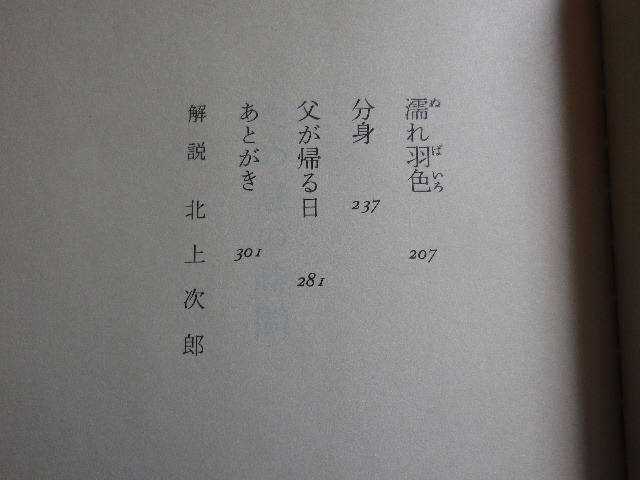 濡れ羽色 207
分身 237
父が帰る日 281
あとがき 301
解説 北上次郎